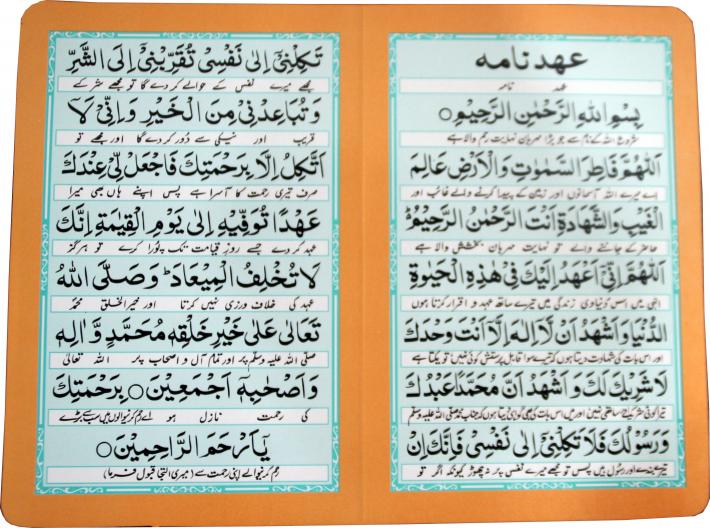 عهد نامه
عہد نامہ
بِسْمِ اللهِ الرَّحْمٰنِ الرَّحِيْمِ
شروع اللہ کے نام سے جو بڑا مہربان نہایت رحم والا ہے
اَللّٰهُمَّ فَاطِرَ السَّمٰوٰتِ وَالْاَرْضِ عَالِمَ
اے میرے اللہ آسمانوں اور زمین کے پیدا کرنے والے غائب اور
الْغَيْبِ وَالشَّهَادَةِ اَنْتَ الرَّحْمٰنُ الرَّحِيْمُ
حاضر کے جاننے والے تو نہایت مہربان بخشش والا ہے
اَللّٰهُمَّ اِنِّيْ اَعْهَدُ اِلَيْكَ فِيْ هٰذِهِ الْحَيٰوةِ
الٰہی میں اس دنیاوی زندگی میں تیرے ساتھ عہد و اقرار کرتا ہوں
الدُّنْيَا وَاَشْهَدُ اَنْ لَّا اِلٰهَ اِلَّا اَنْتَ وَحْدَكَ
اور اس بات کی شہادت دیتا ہوں کہ تیرے سوا قابل پرستش کوئی نہیں تو یکتا ہے
لَا شَرِيْكَ لَكَ وَ اَشْهَدُ اَنَّ مُحَمَّدًا عَبْدُكَ
تیرا کوئی شریک ساتھی نہیں اور میں اس بات کی بھی گواہی دیتا ہوں کہ جناب محمد صلی اللہ علیہ وسلم
وَرَسُوْلُكَ فَلَا تَكِلْنِيْ اِلٰى نَفْسِيْ فَاِنَّكَ اِنْ
تیرے بندے اور رسول ہیں پس تو مجھے میرے نفس پر نہ چھوڑ کیونکہ اگر تو
تَكِلْنِيْ اِلٰى نَفْسِيْ تُقَرِّبْنِيْ اِلَى الشَّرِّ
مجھے میرے نفس کے حوالے کر دے گا تو مجھے شر کے
وَتُبَاعِدْنِيْ مِنَ الْخَيْرِ وَاِنِّيْ لَا
قریب اور نیکی سے دور کر دے گا اور مجھے تو
اَتَّكِلُ اِلَّا بِرَحْمَتِكَ فَاجْعَلْ لِّيْ عِنْدَكَ
صرف تیری رحمت کا آسرا ہے پس اپنے ہاں بھی میرا
عَهْدًا تُوَفِّيْهِ اِلٰى يَوْمِ الْقِيٰمَةِ اِنَّكَ
عہد کر دے جسے روز قیامت تک پورا کرے تو ہرگز
لَا تُخْلِفُ الْمِيْعَادَ ط وَصَلَّى اللهُ
عہد کی خلاف ورزی نہیں کرتا اور خیر الخلق محمد
تَعَالٰى عَلٰى خَيْرِ خَلْقِهٖ مُحَمَّدٍ وَّاٰلِهٖ
صلی اللہ علیہ وسلم پر اور تمام آل و اصحاب پر اللہ تعالیٰ
وَاَصْحَابِهٖ اَجْمَعِيْنَ بِرَحْمَتِكَ
کی رحمت نازل ہو اے رحم کرنیوالوں میں سب سے بڑے
يَآ اَرْحَمَ الرَّاحِمِيْنَ
رحم کرنیوالے اپنی رحمت سے (میری التجا قبول فرما)